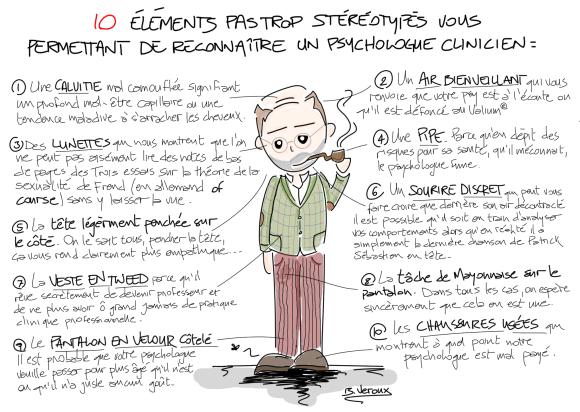 10 ÉLÉMENTS PAS TROP STÉRÉOTYPÉS VOUS
PERMETTANT DE RECONNAÎTRE UN PSYCHOLOGUE CLINICIEN :
① Une CALVITIE mal camouflée signifiant
un profond mal-être capillaire ou une
tendance maladive à s'arracher les cheveux.
② Un AIR BIENVEILLANT qui vous
renvoie que votre psy est à l'écoute ou
qu'il est défoncé au Valium®
③ Des LUNETTES qui nous montrent que l'on
ne peut pas aisément lire des notes de bas
de pages des Trois essais sur la théorie de la
sexualité de Freud (en allemand of
course) sans y laisser la vue.
④ Une PIPE. Parce qu'en dépit des
risques pour sa santé, qu'il méconnait,
le psychologue fume.
⑤ La tête légèrment penchée sur
le côté. On le sait tous, pencher la tête,
ça vous rend clairement plus empathique...
⑥ Un SOURIRE DISCRET qui peut vous
faire croire que derrière son air décontracté
il est possible qu'il soit en train d'analyser
vos comportements alors qu'en réalité il a
simplement la dernière chanson de Patrick
Sébastien en tête.
⑦ La VESTE EN TWEED parce qu'il
rêve secrètement de devenir professeur et
de ne plus avoir ô grand jamais de pratique
clinique professionnelle.
⑧ La tâche de Mayonnaise sur le
pantalon. Dans tous les cas, on espère
sincèrement que cela en est une.
⑨ Le PANTALON EN VELOUR Côtelé
Il est probable que votre psychologue
veuille passer pour plus âgé qu'il n'est
ou qu'il n'a juste aucun goût.
⑩ Les CHAUSSURES USÉES qui
montrent à quel point notre
psychologue est mal payé.
B. Veroux